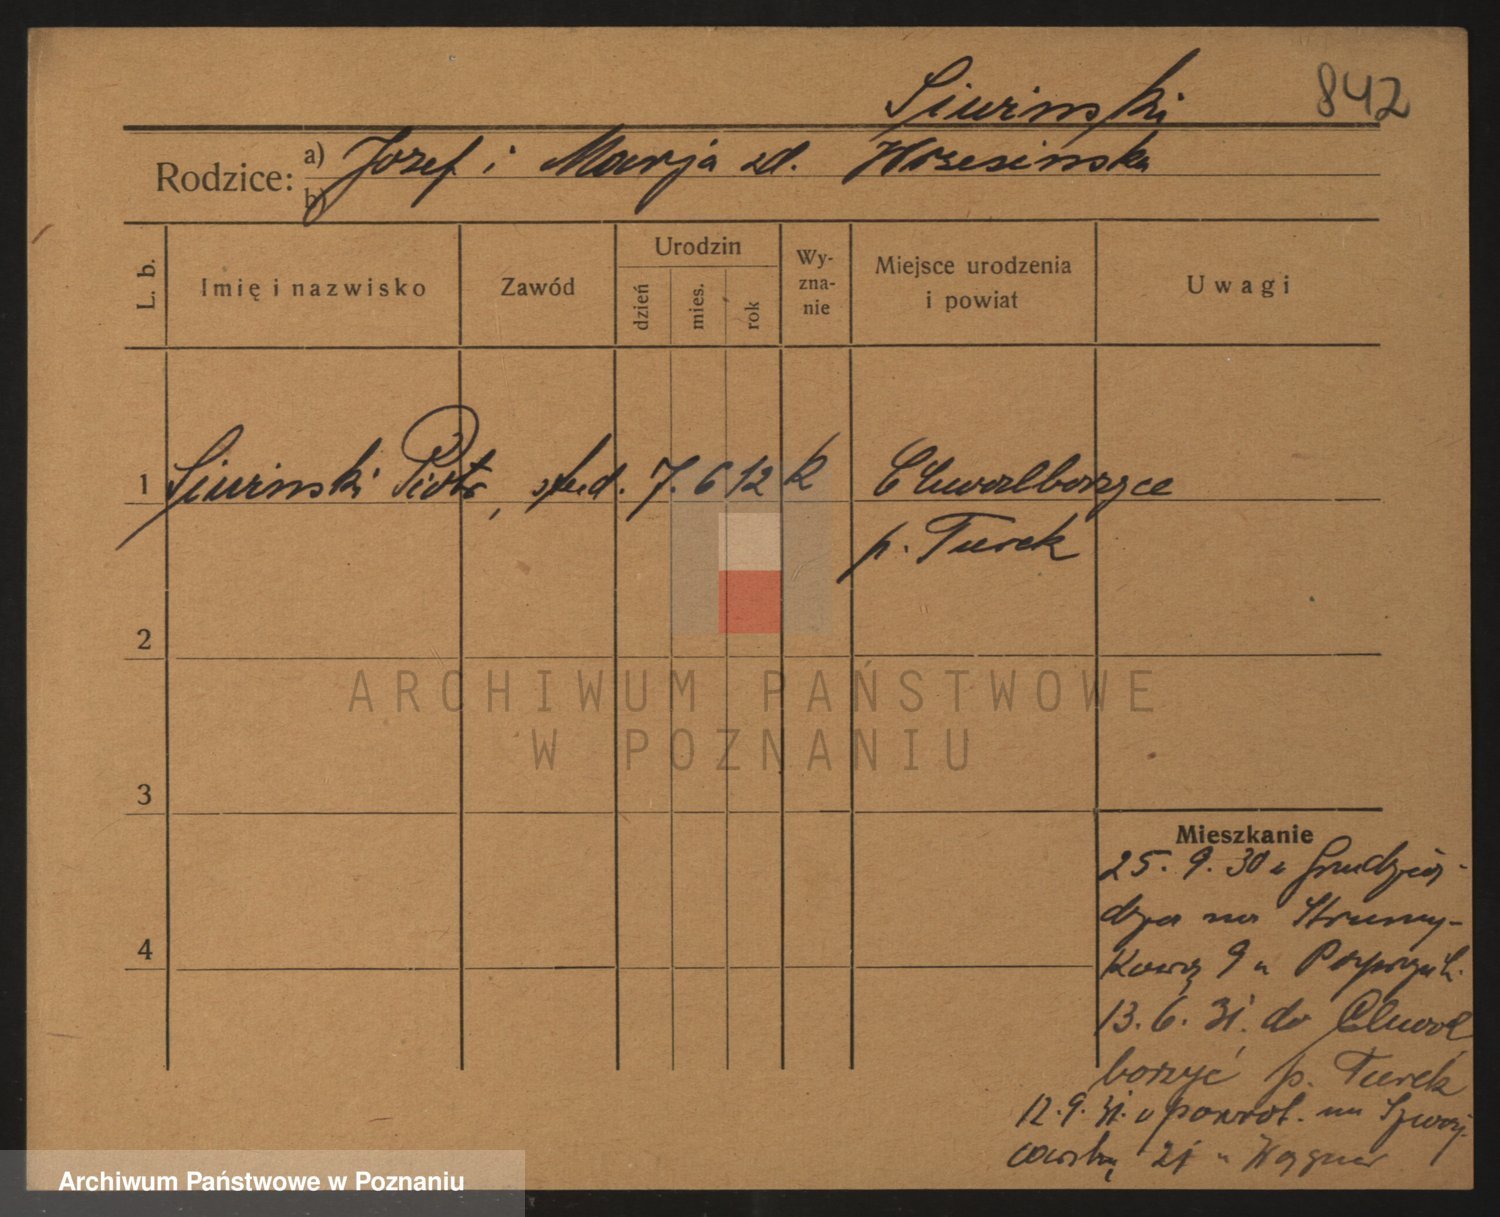 Siwinski 842
Rodzice: a) Jozef i Marja zd. Wrzesinska
b)
L. b. Imię i nazwisko Zawód Urodzin dzień mies. rok Wyznanie Miejsce urodzenia i powiat Uwagi
1 Siwinski Piotr, stud. 7. 6 12 k Chwalborzyce
p. Turek
2
ARCHIWUM PAŃSTWOWE
W POZNANIU
3
Mieszkanie
25. 9. 30 z Grudzią-
dza na Strumy-
kową 9 u
13. 6. 31. do Chwal
borzyć p. Turek
4
12. 9. 31. z powrot. na Szwaj
carską 21 u Wagner
Archiwum Państwowe w Poznaniu